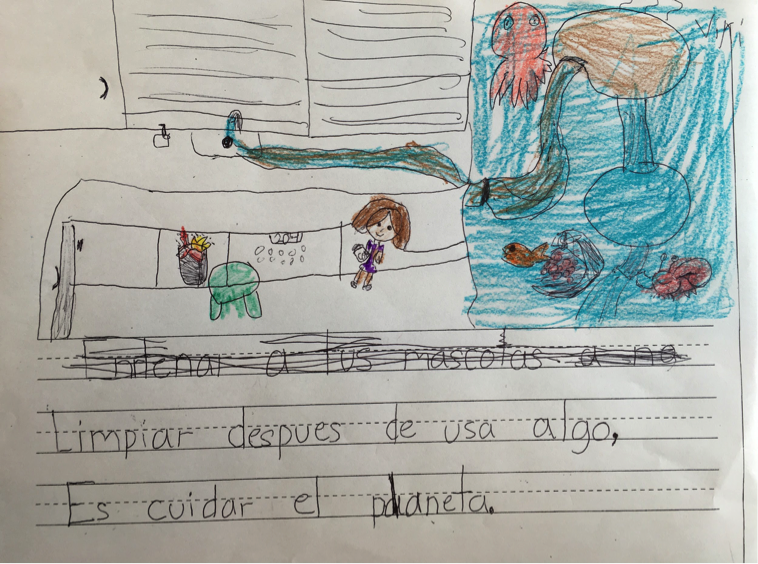 Viki
204
a tus mascotas a
Limpiar despues de usa algo,
Es cuidar el planeta.